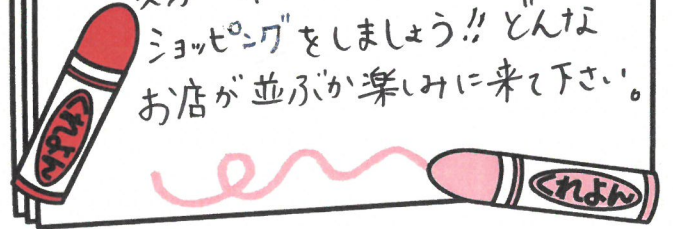 ショッピングをしましょう!!どんな
お店が並ぶか楽しみに来て下さい。
くれよん
くれよん